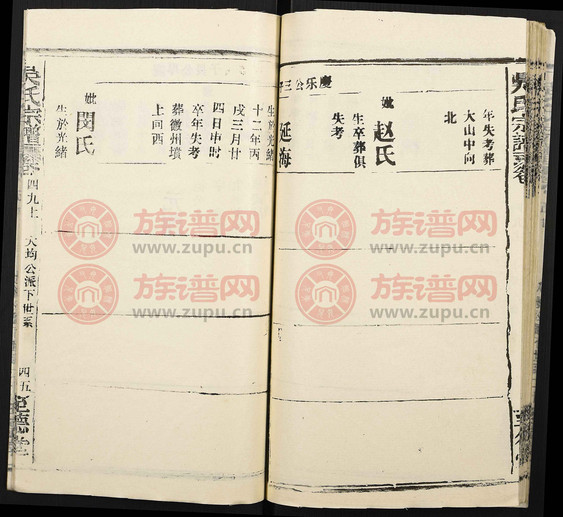 年失考葬
大山中向
北
妣 赵氏
生卒葬俱
失考
慶乐公三子
延海
生於光緒
十二年丙
戌三月廿
四日申时
卒年失考
葬徽州墳
上向西
妣 閔氏
生於光緒
吴氏宗譜
四九上
大均公派下世系
四五
至德堂
族谱网
www.zupu.cn
族谱网
www.zupu.cn
族谱网
www.zupu.cn
族谱网
www.zupu.cn